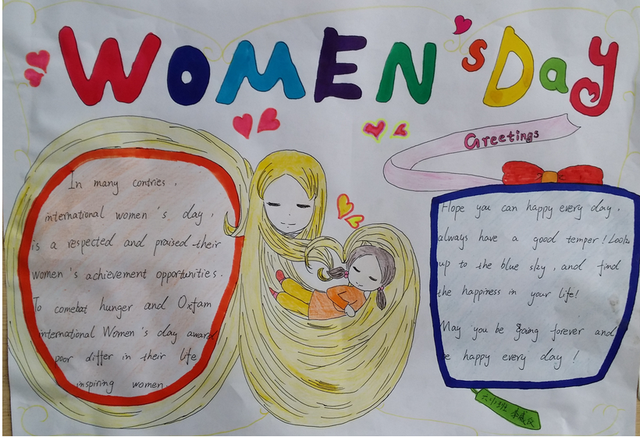 WOMEN'S DAY
Greetings
In many contries,
international women's day,
is a respected and praised their
women's achievement opportunities.
To comebat hunger and Oxfam
international Women's day award
poor differ in their life
inspiring women
Hope you can happy every day,
always have a good temper! Looks
up to the blue sky, and find
the happiness in your life!
May you be going forever and
be happy every day!